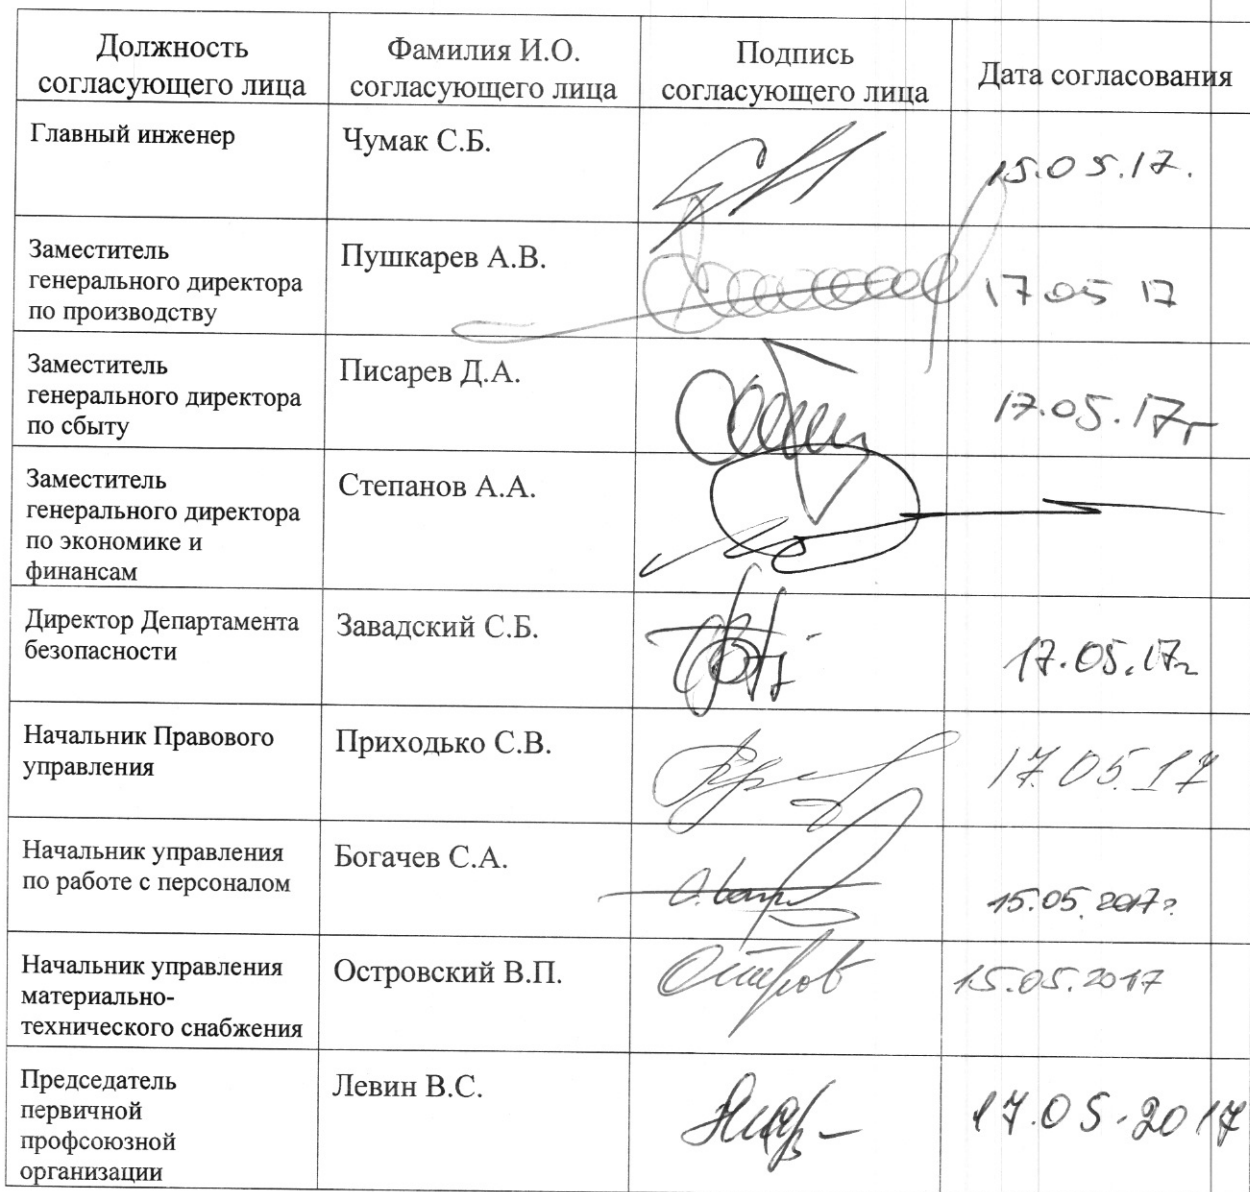 Должность
согласующего лица
Фамилия И.О.
согласующего лица
Подпись
согласующего лица
Дата согласования
Главный инженер
Чумак С.Б.
15.05.17.
Заместитель
генерального директора
по производству
Пушкарев А.В.
17 05 17
Заместитель
генерального директора
по сбыту
Писарев Д.А.
17.05.17г
Заместитель
генерального директора
по экономике и
финансам
Степанов А.А.
Директор Департамента
безопасности
Завадский С.Б.
17.05.17г
Начальник Правового
управления
Приходько С.В.
17.05.17
Начальник управления
по работе с персоналом
Богачев С.А.
15.05.2017г
Начальник управления
материально-
технического снабжения
Островский В.П.
Остров
15.05.2017
Председатель
первичной
профсоюзной
организации
Левин В.С.
17.05.2017